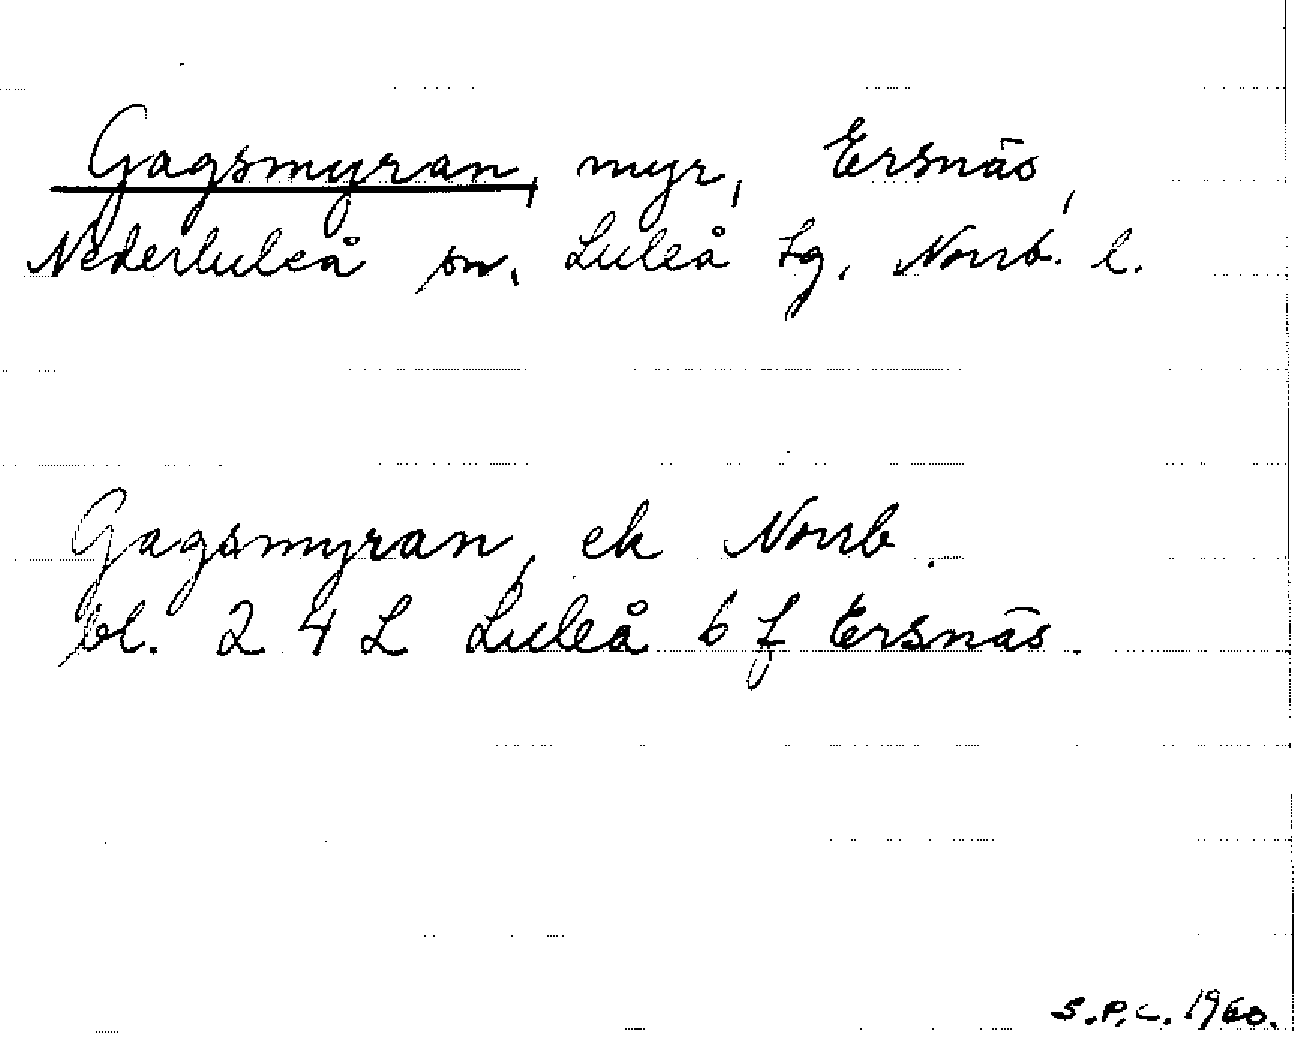 Gagsmyran, myr, Ersnäs,
Nederluleå sn. Luleå tg. Norrb. l.
Gagsmyran, ek Norrb.
bl. 24 L Luleå 6 f Ersnäs.
S.P.C. 1960.